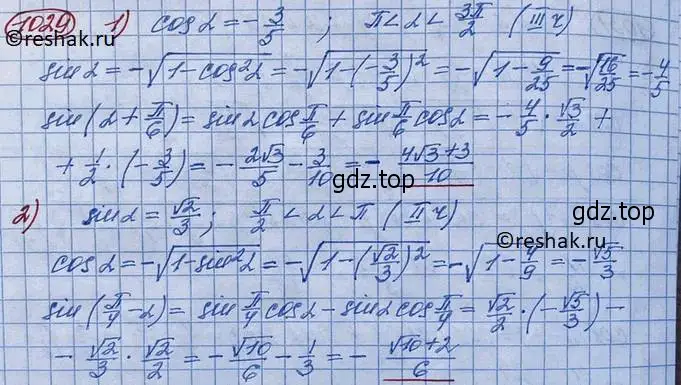 1029 1) cos α = -3/5 ; π < α < 3π/2 (III ч)
©reshak.ru
sin α = -√(1-cos²α) = -√(1-(-3/5)²) = -√(1-9/25) = -√(16/25) = -4/5
sin(α + π/6) = sin α cos π/6 + sin π/6 cos α = -4/5 · √3/2 +
+ 1/2 · (-3/5) = -2√3/5 - 3/10 = - (4√3+3)/10
gdz.top
2) sin α = √2/3 ; π/2 < α < π (II ч)
gdz.top
©reshak.ru
cos α = -√(1-sin²α) = -√(1-(√2/3)²) = -√(1-4/9) = -√5/3
sin(π/4 - α) = sin π/4 cos α - sin α cos π/4 = √2/2 · (-√5/3) -
- √2/3 · √2/2 = -√10/6 - 1/3 = - (√10+2)/6